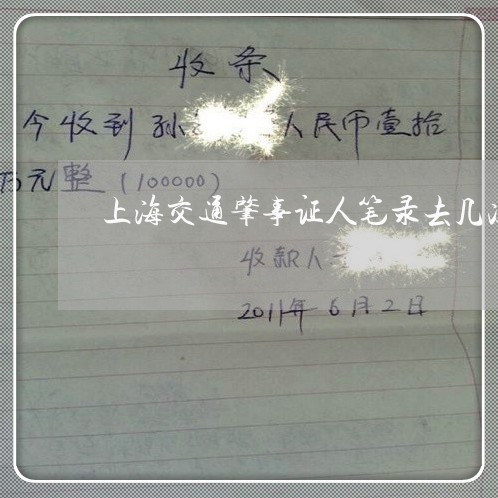 收条
今收到孙 人民币壹拾
万元整（100000）
上海交通肇事证人笔录去几
收款人
2011年6月2日